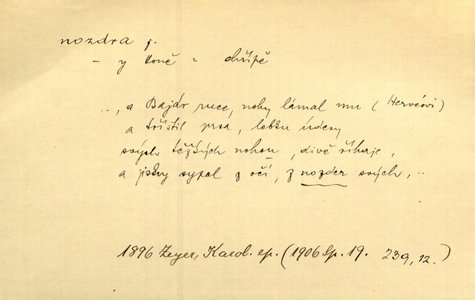 nozdra f.
– u koně = chřípě
„, a Bajár ruce, nohy lámal mu (Hervéovi)
a tříštil prsa, lebku údery
svých těžkých nohou, divě říhaje,
a jiskry sypal z očí, z nozder svých, „
1896 Zeyer, Karol. ep. (1906 Sp. 19. 239, 12.)